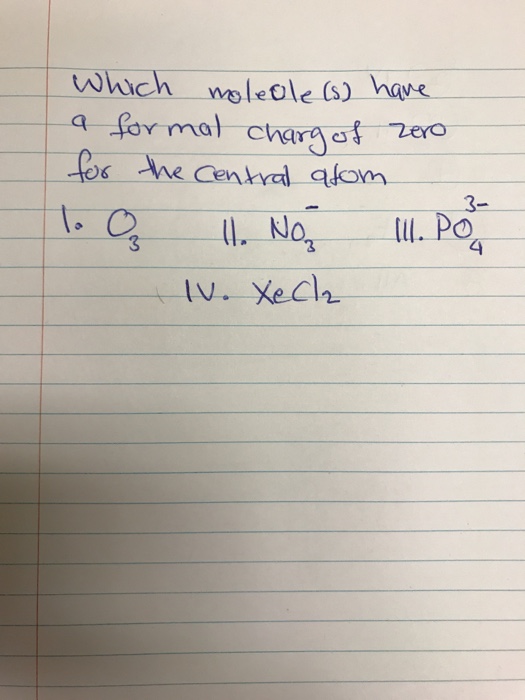 Which moleole (s) have
a formal charg of zero
for the central atom
I. O3 II. NO3- III. PO4 3-
IV. XeCl2